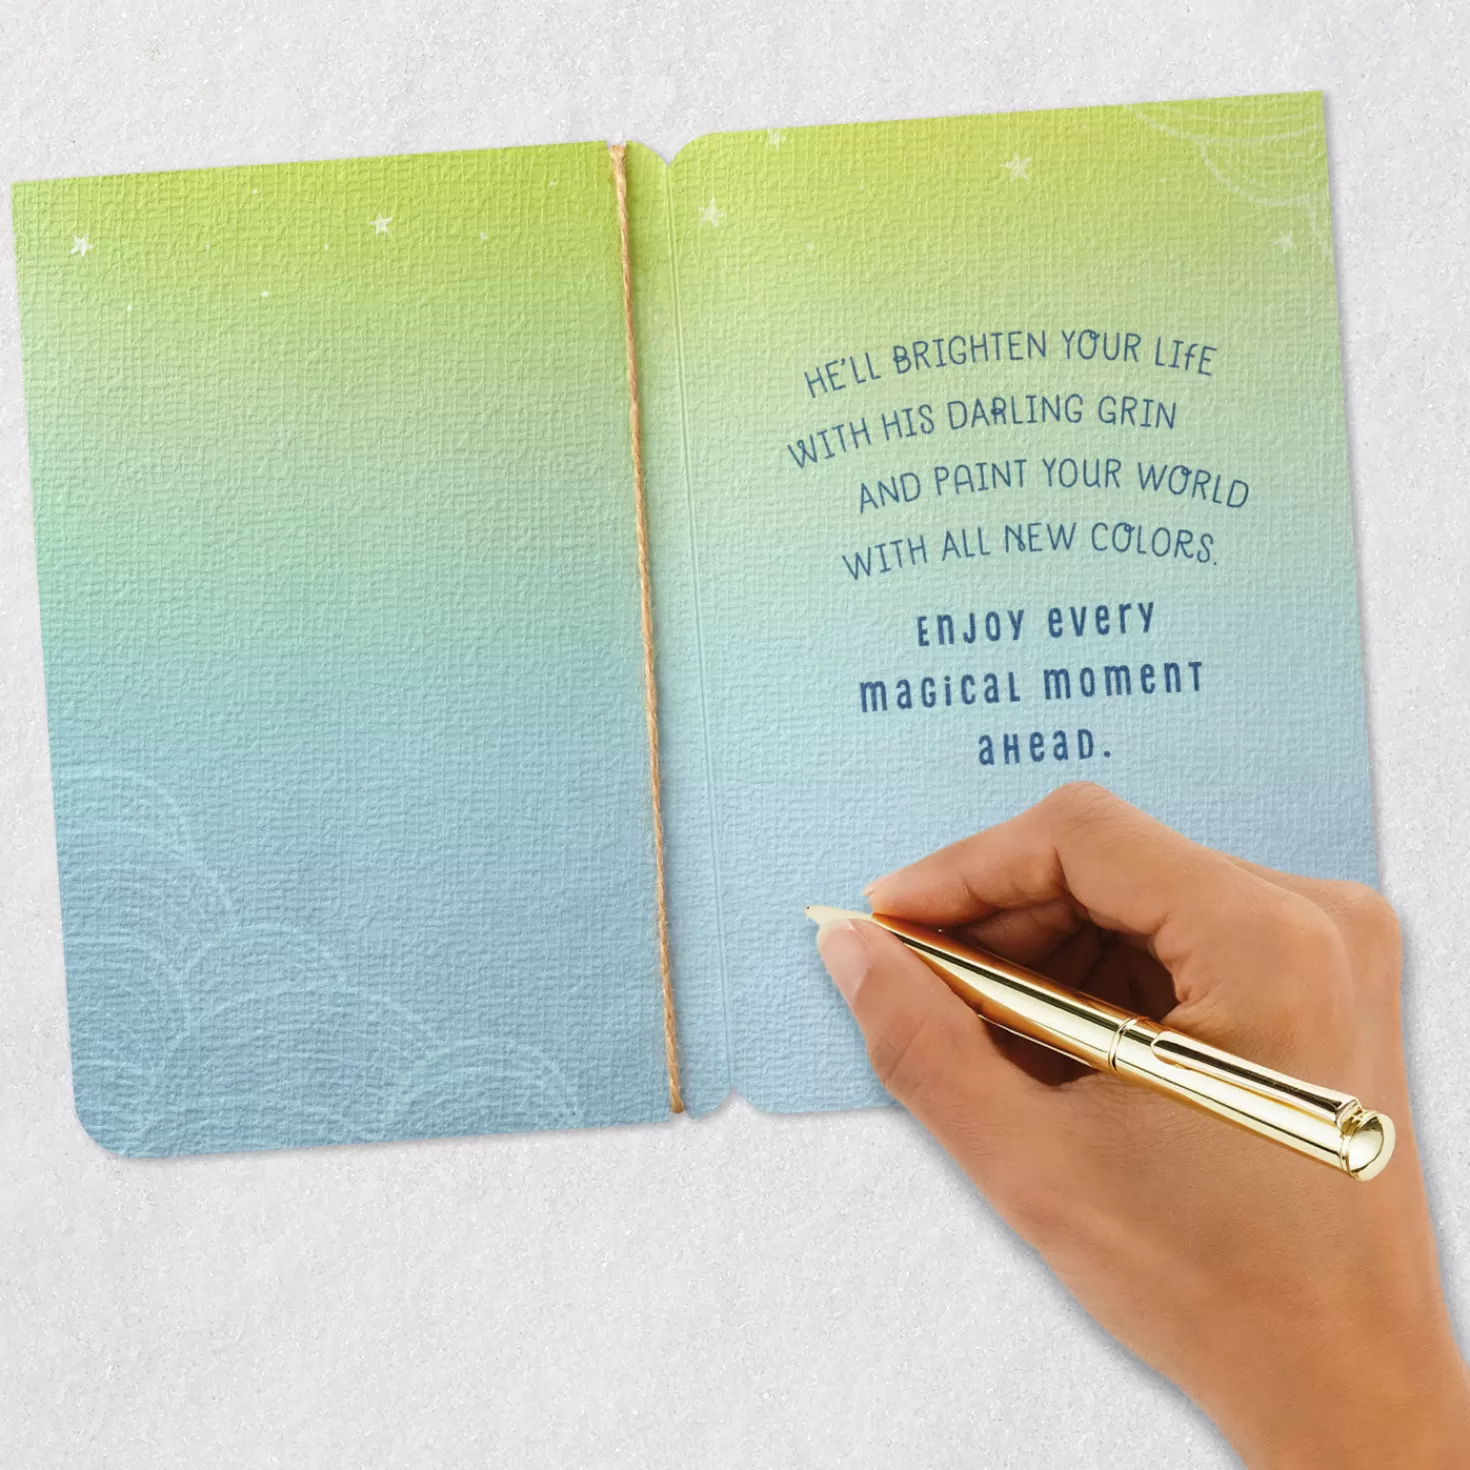 HE'LL BRIGHTEN YOUR LIFE
WITH HIS DARLING GRIN
AND PAINT YOUR WORLD
WITH ALL NEW COLORS.
ENJOY EVERY
MAGICAL MOMENT
AHEAD.